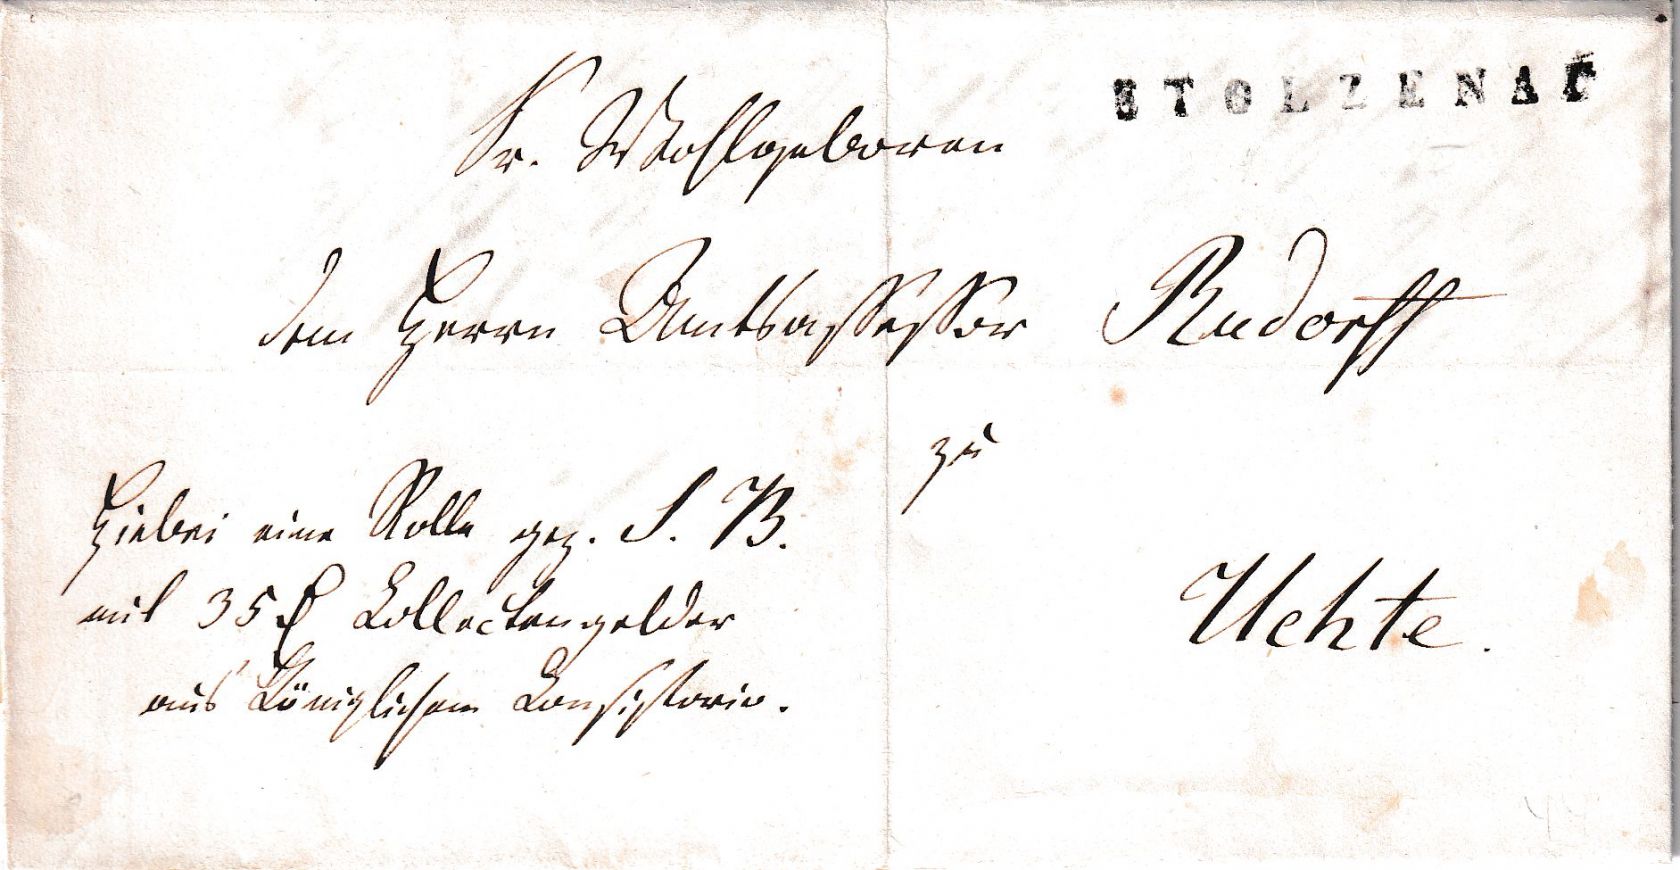 STOLZENAU
Sr. Wohlgeboren
dem Herrn Amtsassessor Rudorff
zu
Uchte.
Hiebei eine Rolle gez. S. B.
mit 35 ₰ Collectengelder
aus Königlichem Consistorio.